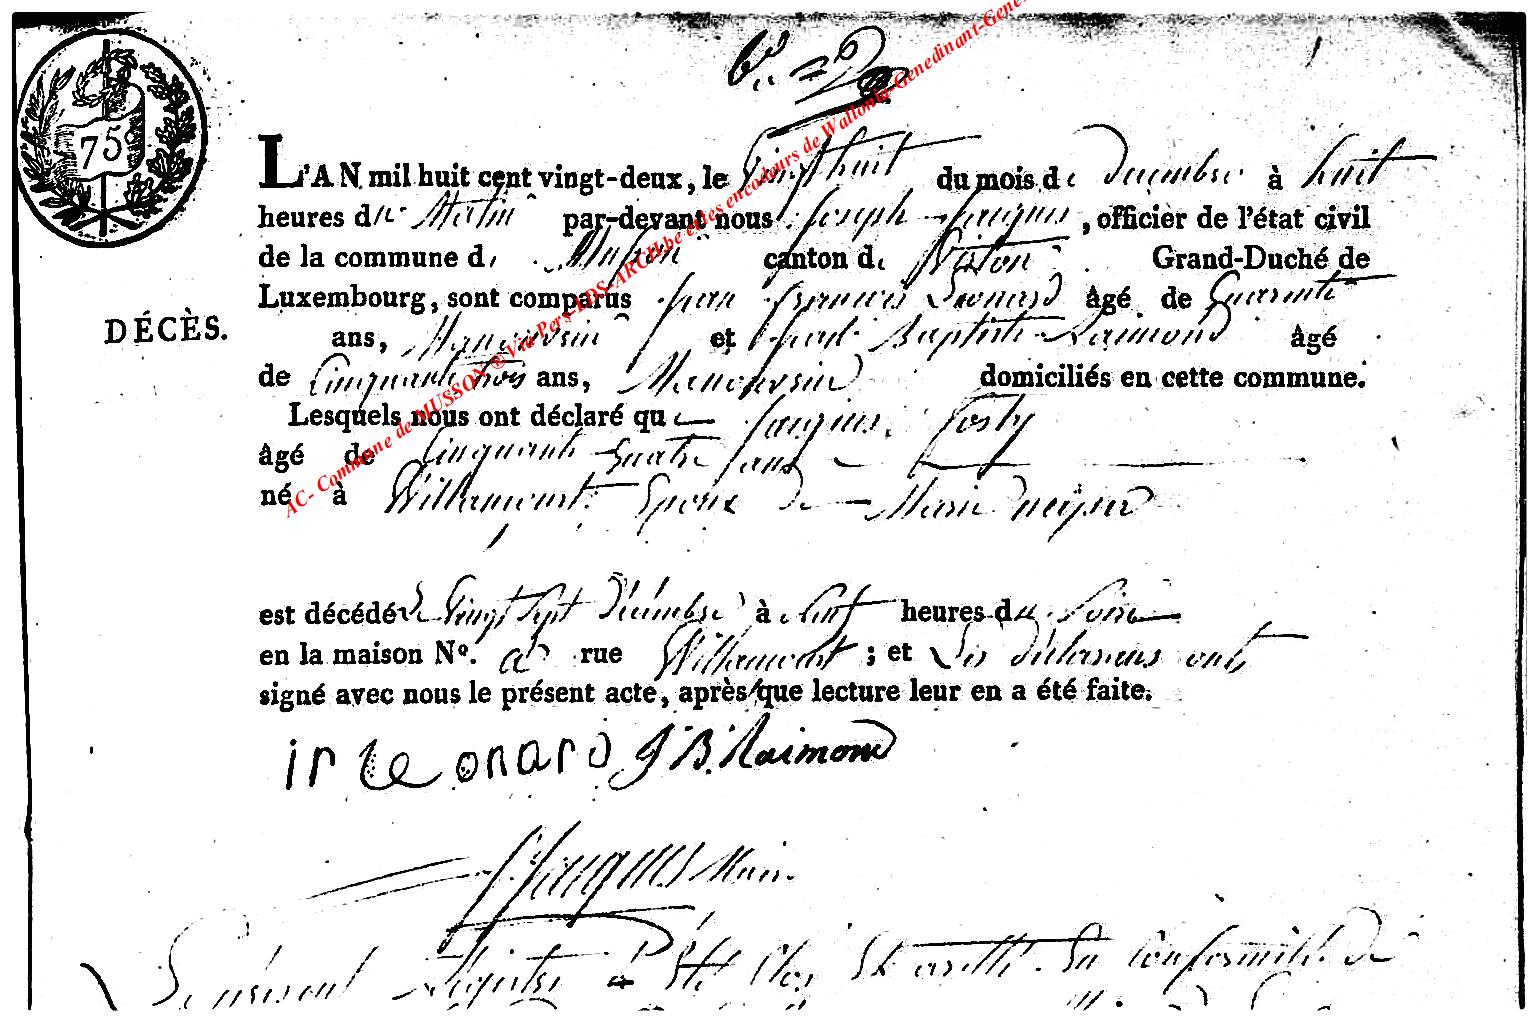 75
L'AN mil huit cent vingt-deux, le Vingt huit du mois de decembre à huit
heures du Matin par-devant nous Joseph Jacques, officier de l'état civil
de la commune de Musson canton de Virton Grand-Duché de
Luxembourg, sont comparus Jean Francois Leonard âgé de Quarante
DÉCÈS.
ans, Manouvrier et Jean Baptiste Raimond âgé
de Cinquante trois ans, Manouvrier domiciliés en cette commune.
Lesquels nous ont déclaré que Jacques
âgé de Cinquante Quatre ans
né à Willancourt Epoux de Marie
est décédé le Vingt Sept Décémbre à neuf heures du Soir
en la maison Nº. rue Willancourt ; et Les déclarans ont
signé avec nous le présent acte, après que lecture leur en a été faite.
Leonard J B. Raimond
J Jacques Maire
Le présent Registre a Eté Clos Et arrêté En Conformité de
AC- Commune de MUSSON ® Via Pers-LDS-ARCH.be et les encodeurs de Wallonia-Genedinant-Gene